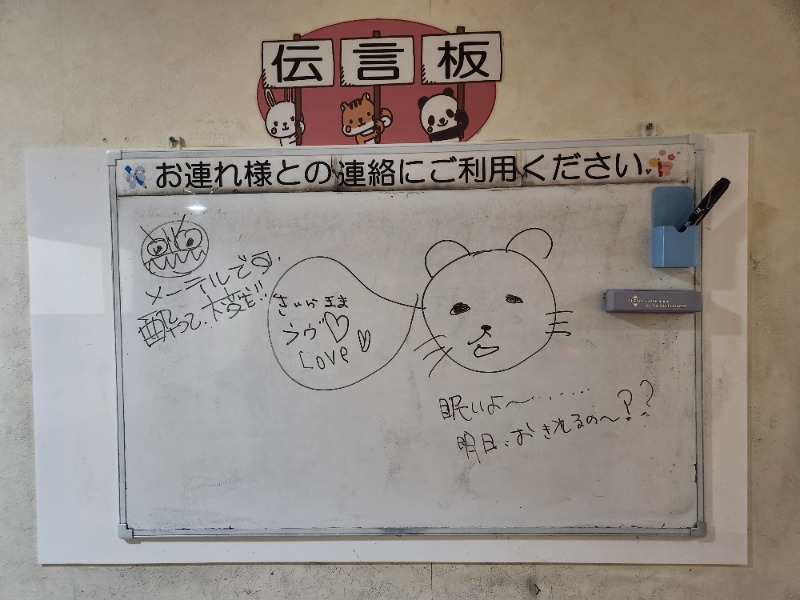 伝言板
お連れ様との連絡にご利用ください。
メーテルです。
酔って、大変だ!!
さいら 王ま
ラヴ♡
Love♡
眠いよ〜・・・・・・・
明日、おきれるの〜??